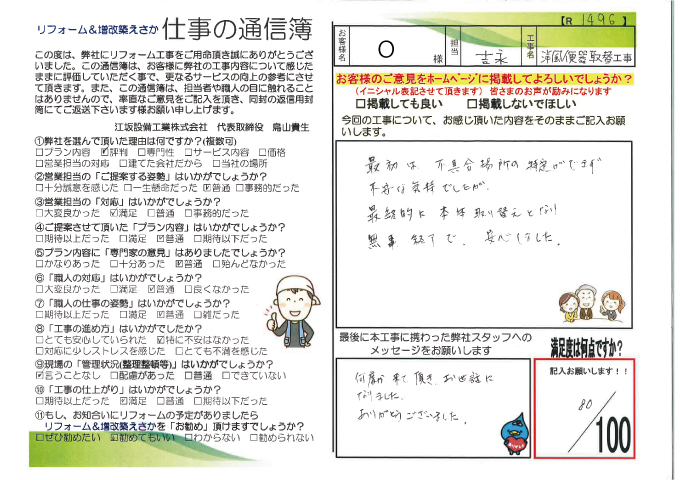 リフォーム&増改築えさか 仕事の通信簿
この度は、弊社にリフォーム工事をご用命頂き誠にありがとうござ
いました。この通信簿は、お客様に弊社の工事内容について感じた
ままに評価していただく事で、更なるサービスの向上の参考にさせ
て頂きます。また、この通信簿は、担当者や職人の目に触れること
はありませんので、率直なご意見をご記入を頂き、同封の返信用封
筒にてご返送下さいます様お願い申し上げます。
江坂設備工業株式会社 代表取締役 鳥山貴生
①弊社を選んで頂いた理由は何ですか?(複数可)
□プラン内容 ☑評判 □専門性 □サービス内容 □価格
□営業担当の対応 □建てた会社だから □当社の場所
②営業担当の「ご提案する姿勢」はいかがでしょうか?
□十分誠意を感じた □一生懸命だった ☑普通 □事務的だった
③営業担当の「対応」はいかがでしょうか?
□大変良かった ☑満足 □普通 □事務的だった
④ご提案させて頂いた「プラン内容」はいかがでしょうか?
□期待以上だった □満足 ☑普通 □期待以下だった
⑤プラン内容に「専門家の意見」はありましたでしょうか?
□かなりあった □十分あった ☑普通 □殆んどなかった
⑥「職人の対応」はいかがでしょうか?
□大変良かった □満足 ☑普通 □良くなかった
⑦「職人の仕事の姿勢」はいかがでしょうか?
□期待以上だった □満足 ☑普通 □雑だった
⑧「工事の進め方」はいかがでしたか?
□とても安心していられた ☑特に不安はなかった
□対応に少しストレスを感じた □とても不満を感じた
⑨現場の「管理状況(整理整頓等)」はいかがでしょうか?
☑言うことなし □配慮があった □普通 □できていない
⑩「工事の仕上がり」はいかがでしょうか?
□期待以上だった ☑満足 □普通 □期待以下だった
⑪もし、お知合いにリフォームの予定がありましたら
リフォーム&増改築えさかを「お勧め」頂けますでしょうか?
□ぜひ勧めたい ☑勧めてもいい □わからない □勧められない
【R 1496 】
お客様名 O 様 担当 吉永 工事名 洋風便器取替工事
お客様のご意見をホームページに掲載してよろしいでしょうか?
(イニシャル表記させて頂きます) 皆さまのお声が励みになります
□掲載しても良い □掲載しないでほしい
今回の工事について、お感じ頂いた内容をそのままご記入お願
いします。
最初は 不具合場所の特定ができず
不安な気持でしたが、
最終的に 本体取り替えとなり
無事 終了で、安心しました。
最後に本工事に携わった弊社スタッフへの
メッセージをお願いします
何度か 来て 頂き、お世話に
なりました。
ありがとうございました。
満足度は何点ですか?
記入お願いします!!
80
/100